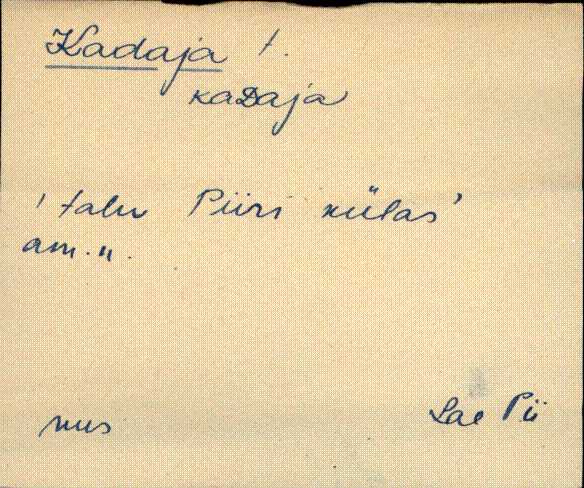 Kadaja t.
kaDaja
'talu Piiri külas'
am. n.
nus
Lae Pii